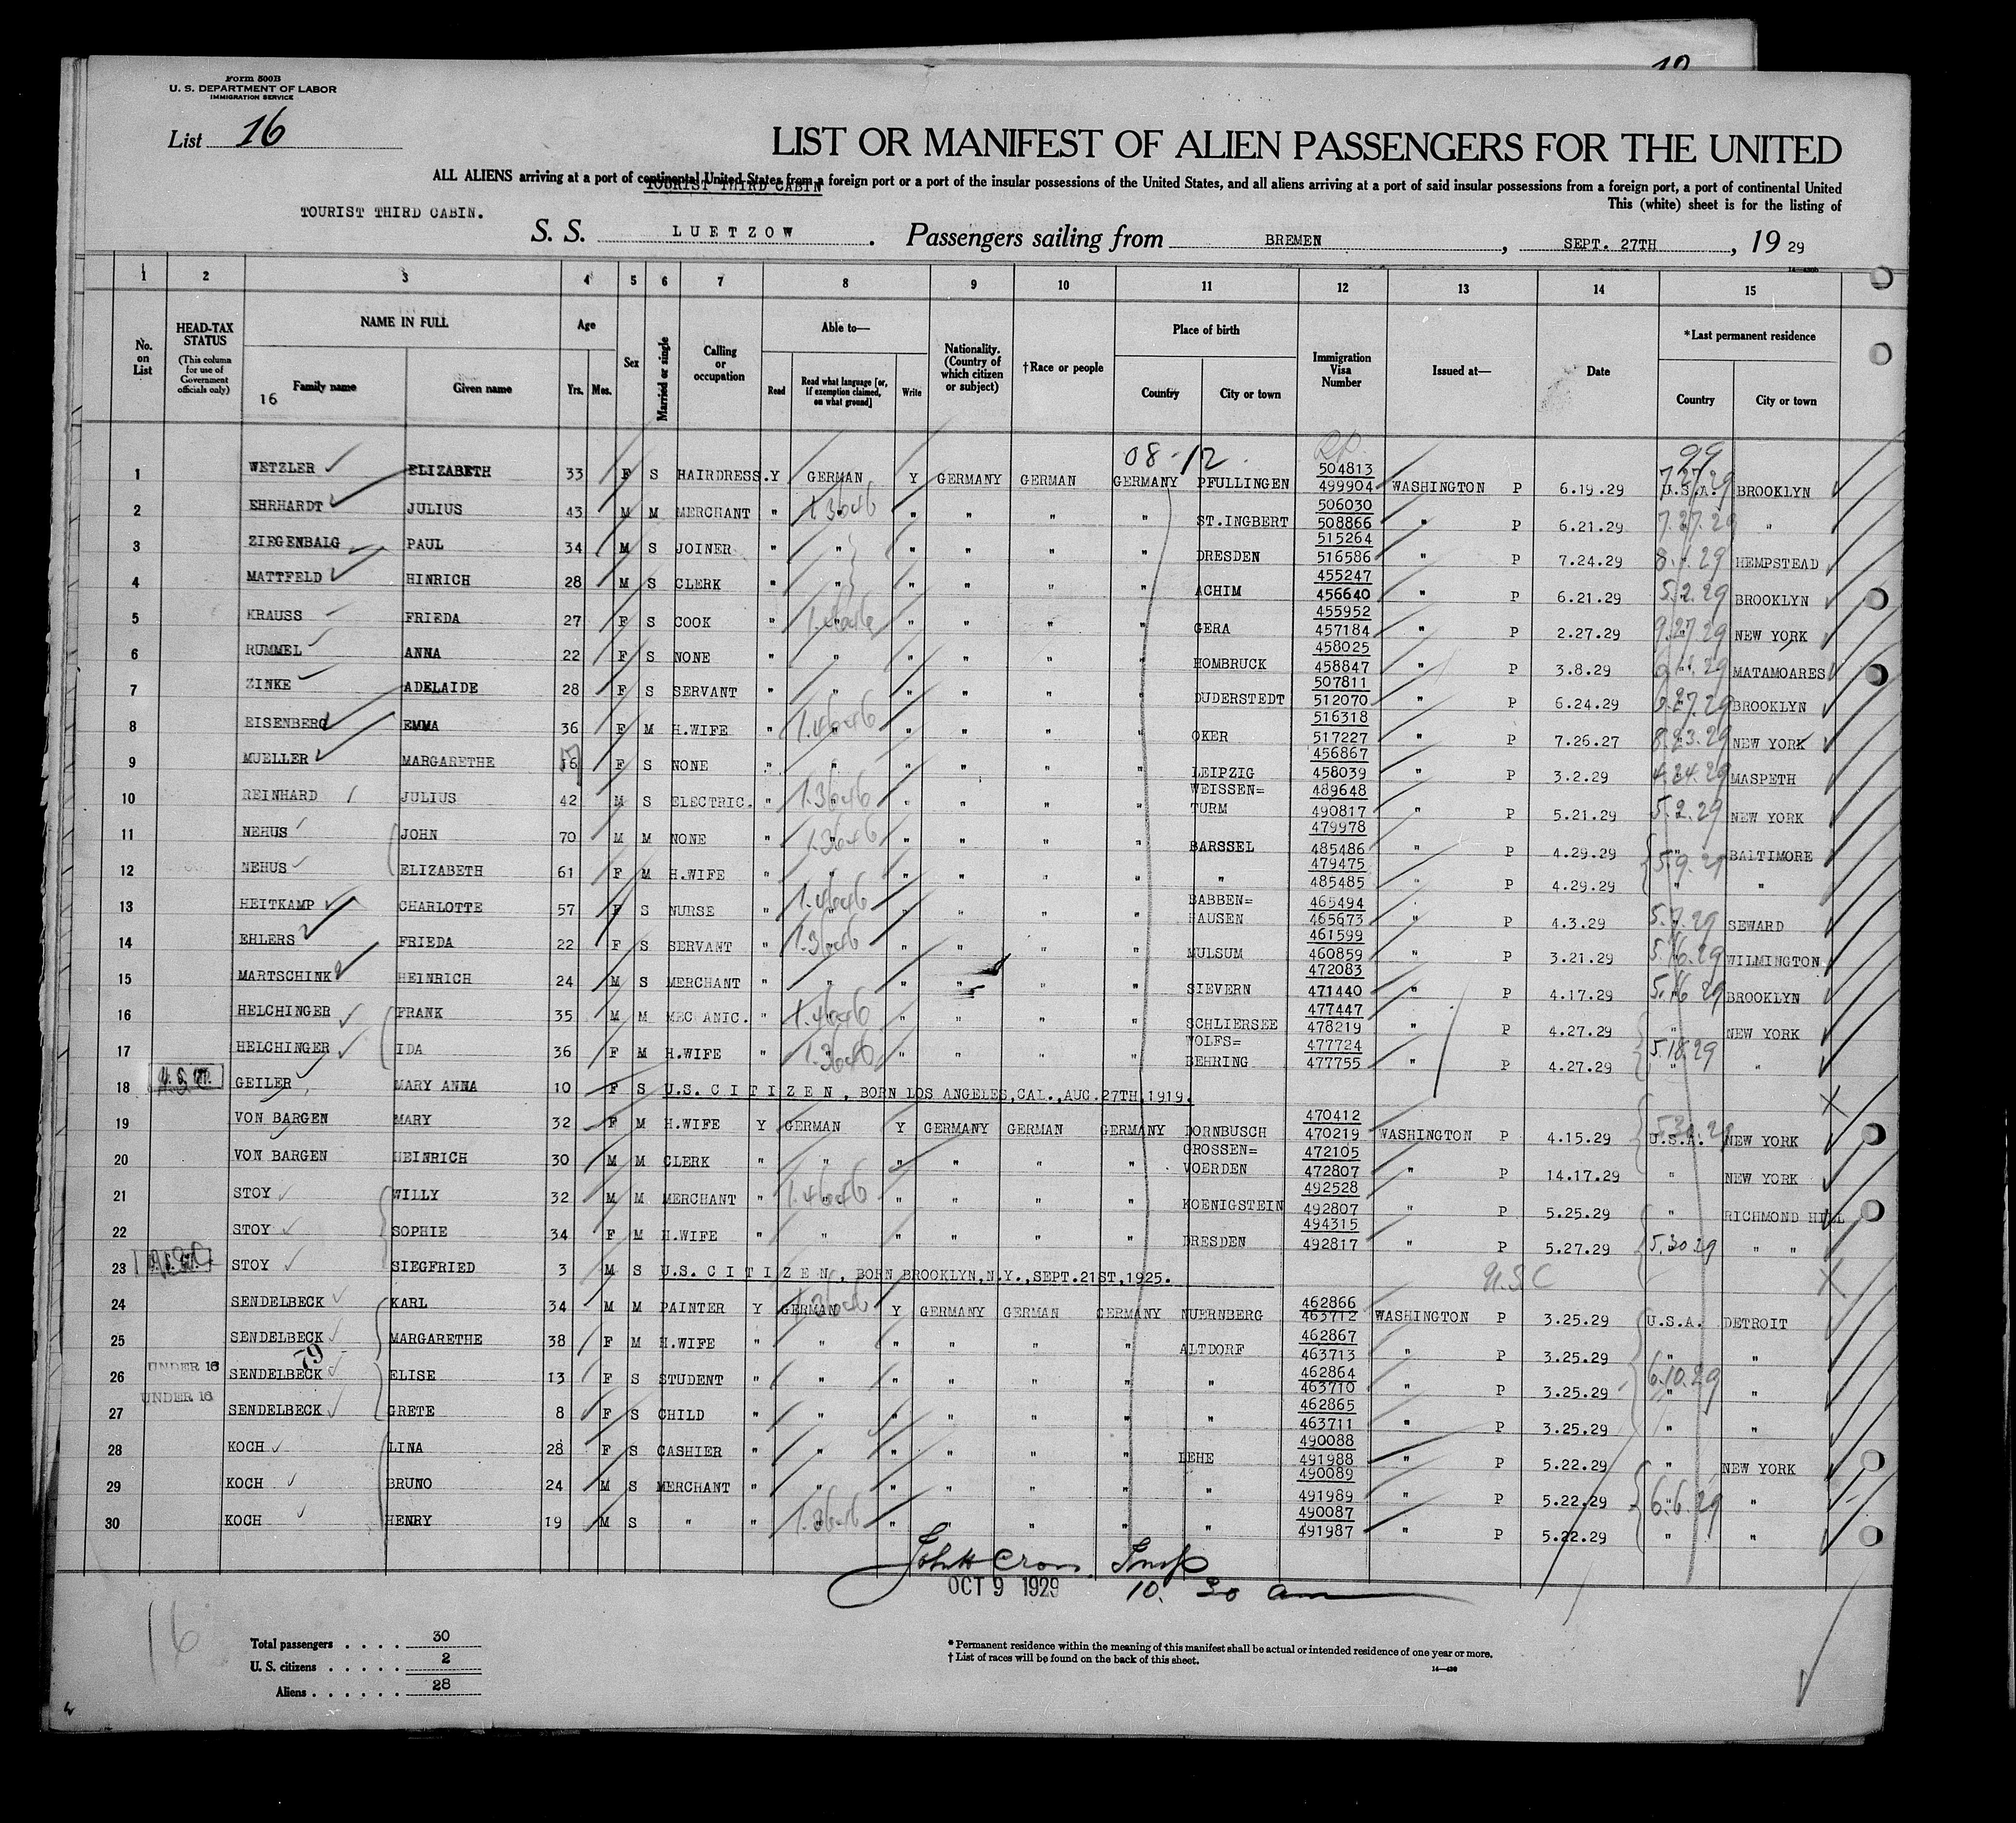 Form 500B
U. S. DEPARTMENT OF LABOR
IMMIGRATION SERVICE
List 16
LIST OR MANIFEST OF ALIEN PASSENGERS FOR THE UNITED
ALL ALIENS arriving at a port of continental United States from a foreign port or a port of the insular possessions of the United States, and all aliens arriving at a port of said insular possessions from a foreign port, a port of continental United
TOURIST THIRD CABIN
This (white) sheet is for the listing of
TOURIST THIRD CABIN.
S. S. LUETZOW. Passengers sailing from BREMEN, SEPT. 27TH, 19 29
1 2 3 4 5 6 7 8 9 10 11 12 13 14 15
No. on List
HEAD-TAX STATUS (This column for use of Government officials only)
NAME IN FULL Family name Given name
16
Age Yrs. Mos.
Sex
Married or single
Calling or occupation
Able to— Read Read what language [or, if exemption claimed, on what ground] Write
Nationality. (Country of which citizen or subject)
†Race or people
Place of birth Country City or town
Immigration Visa Number
Issued at—
Date
*Last permanent residence Country City or town
08-12 99
1 WETZLER ELIZABETH 33 F S HAIRDRESS. Y GERMAN Y GERMANY GERMAN GERMANY PFULLINGEN 504813 499904 WASHINGTON P 6.19.29 U.S.A. 7.27.29 BROOKLYN
2 EHRHARDT JULIUS 43 M M MERCHANT " " " " " " ST.INGBERT 506030 508866 " P 6.21.29 7.27.29 "
3 ZIEGENBALG PAUL 34 M S JOINER " " " " " " DRESDEN 515264 516586 " P 7.24.29 HEMPSTEAD
4 MATTFELD HINRICH 28 M S CLERK " " " " " " ACHIM 455247 456640 " P 6.21.29 5.2.29 BROOKLYN
5 KRAUSS FRIEDA 27 F S COOK " " " " " " GERA 455952 457184 " P 2.27.29 9.27.29 NEW YORK
6 RUMMEL ANNA 22 F S NONE " " " " " " HOMBRUCK 458025 458847 " P 3.8.29 MATAMOARES
7 ZINKE ADELAIDE 28 F S SERVANT " " " " " " DUDERSTEDT 507811 512070 " P 6.24.29 BROOKLYN
8 EISENBERG EMMA 36 F M H.WIFE " " " " " " OKER 516318 517227 " P 7.26.27 8.23.29 NEW YORK
9 MUELLER MARGARETHE 16 F S NONE " " " " " " LEIPZIG 456867 458039 " P 3.2.29 4.24.29 MASPETH
10 REINHARD JULIUS 42 M S ELECTRIC. " " " " " " WEISSEN= TURM 489648 490817 " P 5.21.29 5.2.29 NEW YORK
11 NEHUS JOHN 70 M M NONE " " " " " " BARSSEL 479978 485486 " P 4.29.29 " BALTIMORE
12 NEHUS ELIZABETH 61 F M H.WIFE " " " " " " " 479475 485485 " P 4.29.29 5.9.29 " "
13 HEITKAMP CHARLOTTE 57 F S NURSE " " " " " " BABBEN= HAUSEN 465494 465673 " P 4.3.29 5.7.29 SEWARD
14 EHLERS FRIEDA 22 F S SERVANT " " " " " " MULSUM 461599 460859 " P 3.21.29 5.16.29 WILMINGTON
15 MARTSCHINK HEINRICH 24 M S MERCHANT " " " " " " SIEVERN 472083 471440 " P 4.17.29 5.16.29 BROOKLYN
16 HELCHINGER FRANK 35 M M MECHANIC. " " " " " " SCHLIERSEE 477447 478219 " P 4.27.29 " NEW YORK
17 HELCHINGER IDA 36 F M H.WIFE " " " " " " WOLFS= BEHRING 477724 477755 " P 4.27.29 5.18.29 " "
18 GEILER MARY ANNA 10 F S U.S. CITIZEN, BORN LOS ANGELES,CAL.,AUG.27TH,1919.
19 VON BARGEN MARY 32 F M H.WIFE Y GERMAN Y GERMANY GERMAN GERMANY DORNBUSCH 470412 470219 WASHINGTON P 4.15.29 U.S.A. NEW YORK
20 VON BARGEN HEINRICH 30 M M CLERK " " " " " " GROSSEN= VOERDEN 472105 472807 " P 14.17.29 " NEW YORK
21 STOY WILLY 32 M M MERCHANT " " " " " " KOENIGSTEIN 492528 492807 " P 5.25.29 " RICHMOND HILL
22 STOY SOPHIE 34 F M H.WIFE " " " " " " DRESDEN 494315 492817 " P 5.27.29 5.30.29 " "
23 STOY SIEGFRIED 3 M S U.S. CITIZEN, BORN BROOKLYN,N.Y.,SEPT.21ST,1925. USC
24 SENDELBECK KARL 34 M M PAINTER Y GERMAN Y GERMANY GERMAN GERMANY NUERNBERG 462866 463712 WASHINGTON P 3.25.29 U.S.A. DETROIT
25 SENDELBECK MARGARETHE 38 F M H.WIFE " " " " " " ALTDORF 462867 463713 " P 3.25.29 " "
79
UNDER 16 26 SENDELBECK ELISE 13 F S STUDENT " " " " " " " 462864 463710 " P 3.25.29 6.10.29 " "
UNDER 16 27 SENDELBECK GRETE 8 F S CHILD " " " " " " " 462865 463711 " P 3.25.29 " "
28 KOCH LINA 28 F S CASHIER " " " " " " LEHE 490088 491988 " P 5.22.29 " NEW YORK
29 KOCH BRUNO 24 M S MERCHANT " " " " " " " 490089 491989 " P 5.22.29 6.6.29 " "
30 KOCH HENRY 19 M S " " " " " " " " 490087 491987 " P 5.22.29 " "
John H Cross Insp
OCT 9 1929 10.30 am
16
Total passengers . . . . 30
U. S. citizens . . . . . 2
Aliens . . . . . . 28
* Permanent residence within the meaning of this manifest shall be actual or intended residence of one year or more.
† List of races will be found on the back of this sheet.
14—430